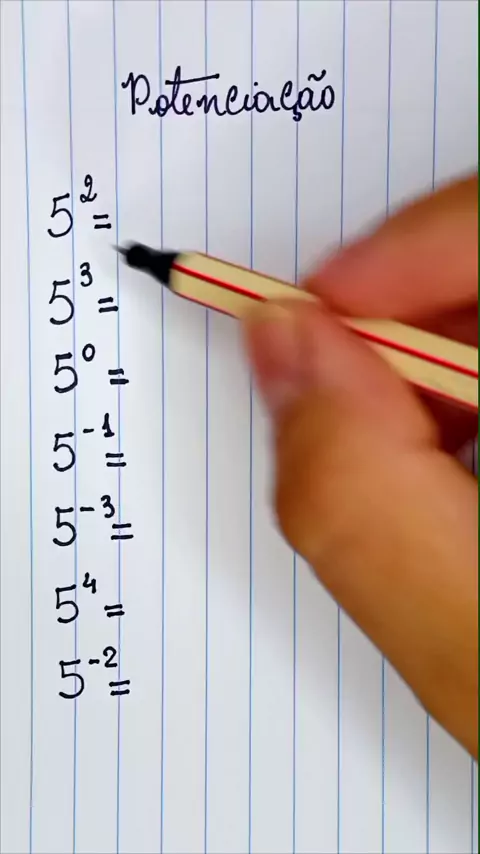 Potenciação
5² =
5³ =
5⁰ =
5⁻¹ =
5⁻³ =
5⁴ =
5⁻² =